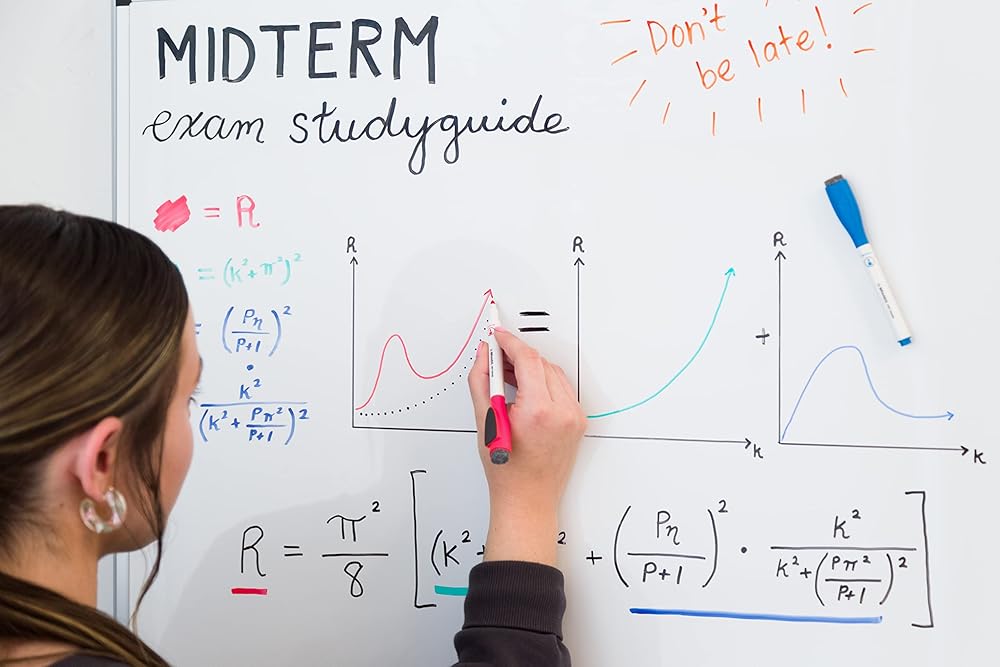 MIDTERM
exam studyguide
Don't
be late!
= R
= (k²+π²)²
= (Pη/P+1)²
·
k²/(k²+Pπ²/P+1)²
R
k
=
R
k
+
R
k
R = π²/8 [(k²+ ² + (Pη/P+1)² · k²/k²+(Pπ²/P+1)²]